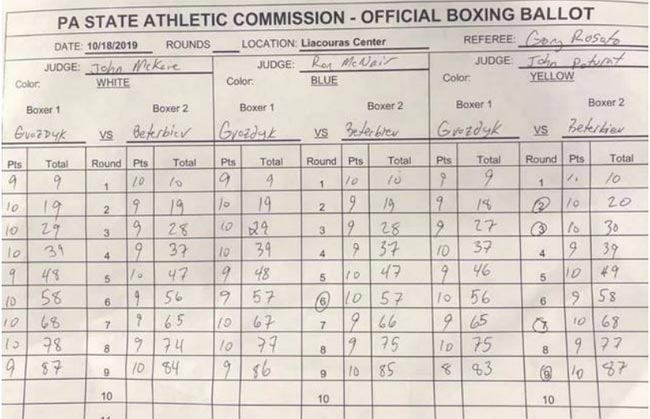 PA STATE ATHLETIC COMMISSION - OFFICIAL BOXING BALLOT
DATE: 10/18/2019 ROUNDS LOCATION: Liacouras Center REFEREE: Gary Rosato
JUDGE: John McKaie JUDGE: Ron McNair JUDGE: John Poturaj
Color: WHITE Color: BLUE Color: YELLOW
Boxer 1 Boxer 2 Boxer 1 Boxer 2 Boxer 1 Boxer 2
Gvozdyk VS Beterbiev Gvozdyk VS Beterbiev Gvozdyk VS Beterbiev
Pts Total Round Pts Total Pts Total Round Pts Total Pts Total Round Pts Total
9 9 1 10 10 9 9 1 10 10 9 9 1 10 10
10 19 2 9 19 10 19 2 9 19 9 18 2 10 20
10 29 3 9 28 10 29 3 9 28 9 27 3 10 30
10 39 4 9 37 10 39 4 9 37 10 37 4 9 39
9 48 5 10 47 9 48 5 10 47 9 46 5 10 49
10 58 6 9 56 9 57 6 10 57 10 56 6 9 58
10 68 7 9 65 10 67 7 9 66 9 65 7 10 68
10 78 8 9 74 10 77 8 9 75 10 75 8 9 77
9 87 9 10 84 9 86 9 10 85 8 83 9 10 87
10 10 10